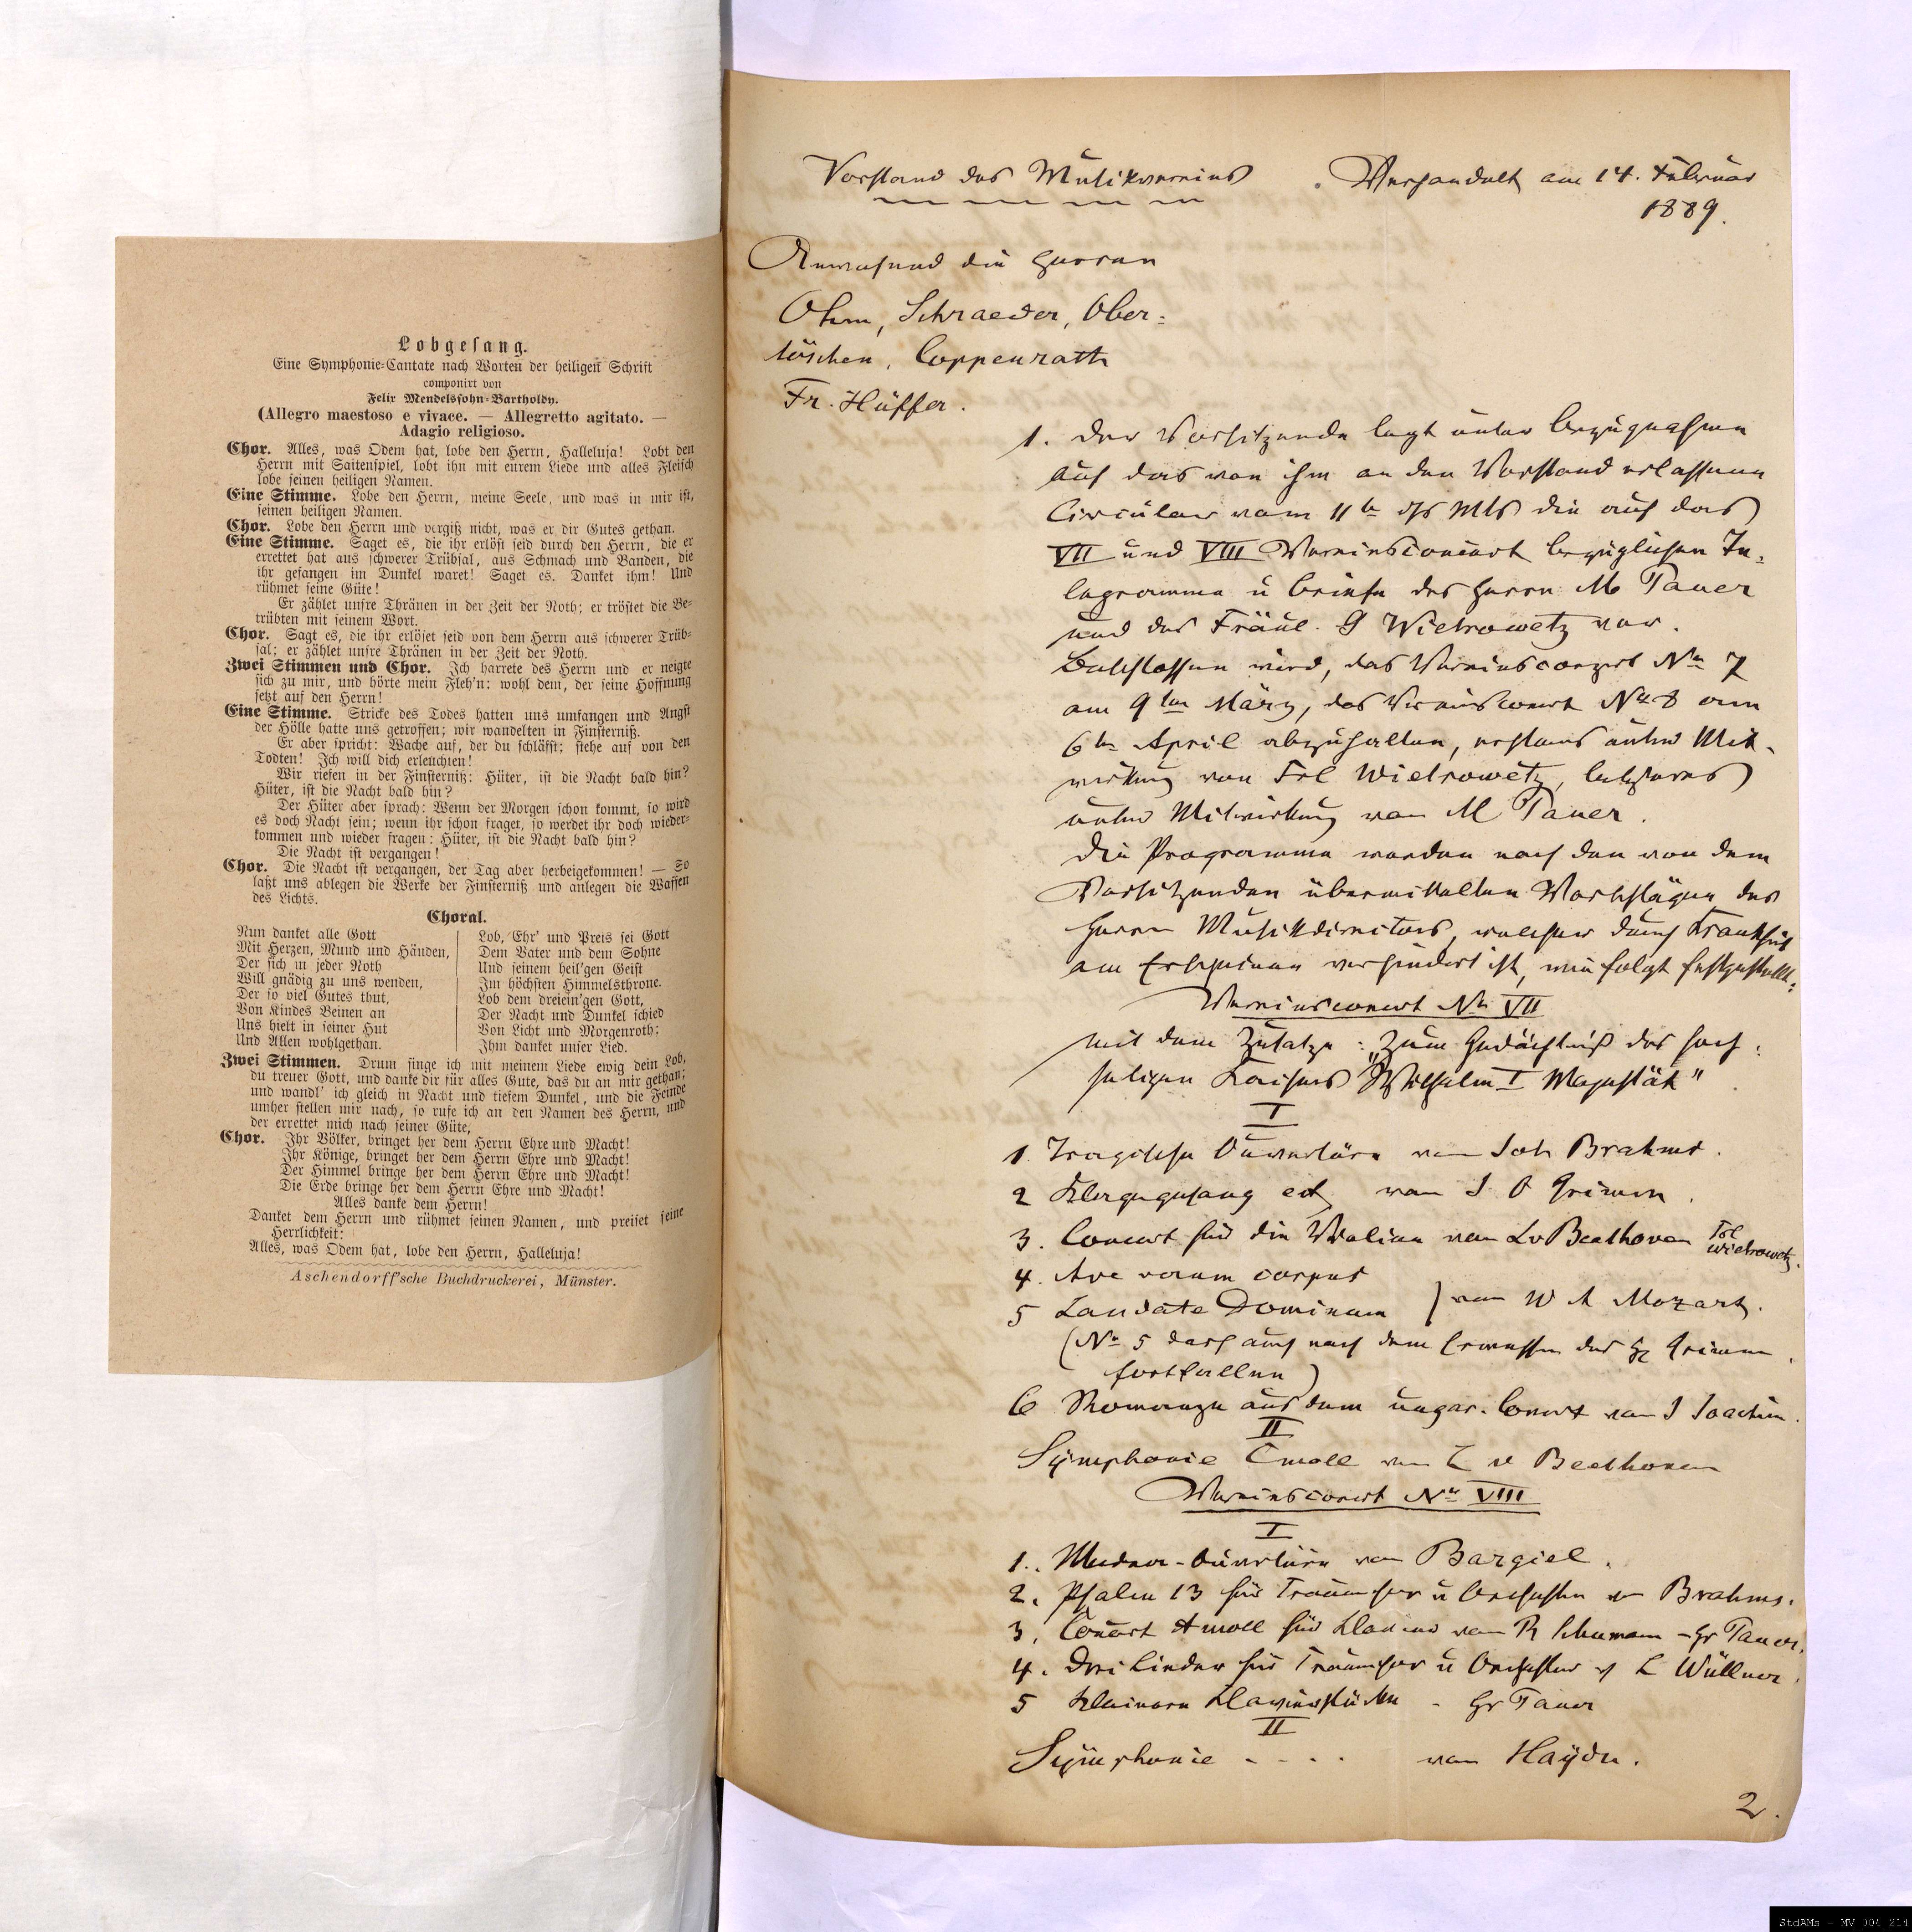 Lobgesang.
Eine Symphonie-Cantate nach Worten der heiligen Schrift
componirt von
Felix Mendelssohn-Bartholdy.
(Allegro maestoso e vivace. — Allegretto agitato. —
Adagio religioso.
Chor. Alles, was Odem hat, lobe den Herrn, Halleluja! Lobt den
Herrn mit Saitenspiel, lobt ihn mit eurem Liede und alles Fleisch
lobe seinen heiligen Namen.
Eine Stimme. Lobe den Herrn, meine Seele, und was in mir ist,
seinen heiligen Namen.
Chor. Lobe den Herrn und vergiß nicht, was er dir Gutes gethan.
Eine Stimme. Saget es, die ihr erlöst seid durch den Herrn, die er
errettet hat aus schwerer Trübsal, aus Schmach und Banden, die
ihr gefangen im Dunkel waret! Saget es. Danket ihm! Und
rühmet seine Güte!
Er zählet unsre Thränen in der Zeit der Noth; er tröstet die Be-
trübten mit seinem Wort.
Chor. Sagt es, die ihr erlöset seid von dem Herrn aus schwerer Trüb-
sal; er zählet unsre Thränen in der Zeit der Noth.
Zwei Stimmen und Chor. Ich harrete des Herrn und er neigte
sich zu mir, und hörte mein Fleh'n: wohl dem, der seine Hoffnung
setzt auf den Herrn!
Eine Stimme. Stricke des Todes hatten uns umfangen und Angst
der Hölle hatte uns getroffen; wir wandelten in Finsterniß.
Er aber spricht: Wache auf, der du schläfst; stehe auf von den
Todten! Ich will dich erleuchten!
Wir riefen in der Finsterniß: Hüter, ist die Nacht bald hin?
Hüter, ist die Nacht bald hin?
Der Hüter aber sprach: Wenn der Morgen schon kommt, so wird
es doch Nacht sein; wenn ihr schon fraget, so werdet ihr doch wieder-
kommen und wieder fragen: Hüter, ist die Nacht bald hin?
Die Nacht ist vergangen!
Chor. Die Nacht ist vergangen, der Tag aber herbeigekommen! — So
laßt uns ablegen die Werke der Finsterniß und anlegen die Waffen
des Lichts.
Choral.
Nun danket alle Gott
Mit Herzen, Mund und Händen,
Der sich in jeder Noth
Will gnädig zu uns wenden,
Der so viel Gutes thut,
Von Kindes Beinen an
Uns hielt in seiner Hut
Und Allen wohlgethan.
Lob, Ehr' und Preis sei Gott
Dem Vater und dem Sohne
Und seinem heil'gen Geist
Im höchsten Himmelsthrone.
Lob dem dreiein'gen Gott,
Der Nacht und Dunkel schied
Von Licht und Morgenroth;
Ihm danket unser Lied.
Zwei Stimmen. Drum singe ich mit meinem Liede ewig dein Lob,
du treuer Gott, und danke dir für alles Gute, das du an mir gethan;
und wandl' ich gleich in Nacht und tiefem Dunkel, und die Feinde
umher stellen mir nach, so rufe ich an den Namen des Herrn, und
der errettet mich nach seiner Güte,
Chor. Ihr Völker, bringet her dem Herrn Ehre und Macht!
Ihr Könige, bringet her dem Herrn Ehre und Macht!
Der Himmel bringe her dem Herrn Ehre und Macht!
Die Erde bringe her dem Herrn Ehre und Macht!
Alles danke dem Herrn!
Danket dem Herrn und rühmet seinen Namen, und preiset seine
Herrlichkeit:
Alles, was Odem hat, lobe den Herrn, Halleluja!
Aschendorff'sche Buchdruckerei, Münster.
Vorstand des Musikvereins
Verhandelt am 14. Februar
1889.
Anwesend die Herren
Ohm, Schraeder, Ober-
töschen, Coppenrath
Fr. Hüffer.
1. Der Vorsitzende legt unter Bezugnahme
auf das von ihm an den Vorstand erlassene
Circular vom 11ten ds Mts die auf das
VII und VIII Vereinsconcert bezüglichen Te-
legramme u Briefe des Herrn M Pauer
und des Fräul. G Wietrowetz vor.
Beschlossen wird, das Vereinsconzert No 7
am 9ten März, das Vereinsconcert No 8 am
6ten April abzuhalten, ersteres unter Mit-
wirkung von Frl Wietrowetz, letzteres
unter Mitwirkung von M Pauer.
Die Programme werden nach den von dem
Vorsitzenden übermittelten Vorschlägen des
Herrn Musikdirectors, welcher durch Krankheit
am Erscheinen verhindert ist, wie folgt festgestellt:
Vereinsconcert No VII
mit dem Zusatze: "Zum Gedächtniß des hoch-
seligen Kaisers Wilhelm I Majestät"
I
1 Tragische Ouverture von Joh Brahms.
2 Klagegesang ect von J O Grimm.
3. Concert für die Violine von L v Beethoven Frl Wietrowetz.
4. Ave verum corpus
5 Laudate Dominum } von W A Mozart.
(No 5 darf auch nach dem Ermessen des H Grimm
fortfallen)
6 Romanze aus dem ungar. Concert von J Joachim.
II
Symphonie Cmoll von L v Beethoven
Vereinsconcert No VIII
I
1. Medea-Ouverture von Bargiel.
2. Psalm 13 für Frauenchor u Orchester v Brahms.
3. Concert A moll für Klavier von R Schumann - Hr Pauer.
4. Drei Lieder für Frauenchor u Orchester v L Wüllner.
5 Kleinere Klavierstücke - Hr Pauer
II
Symphonie - - - . von Haydn.
2.
StdAMs - MV_004_214